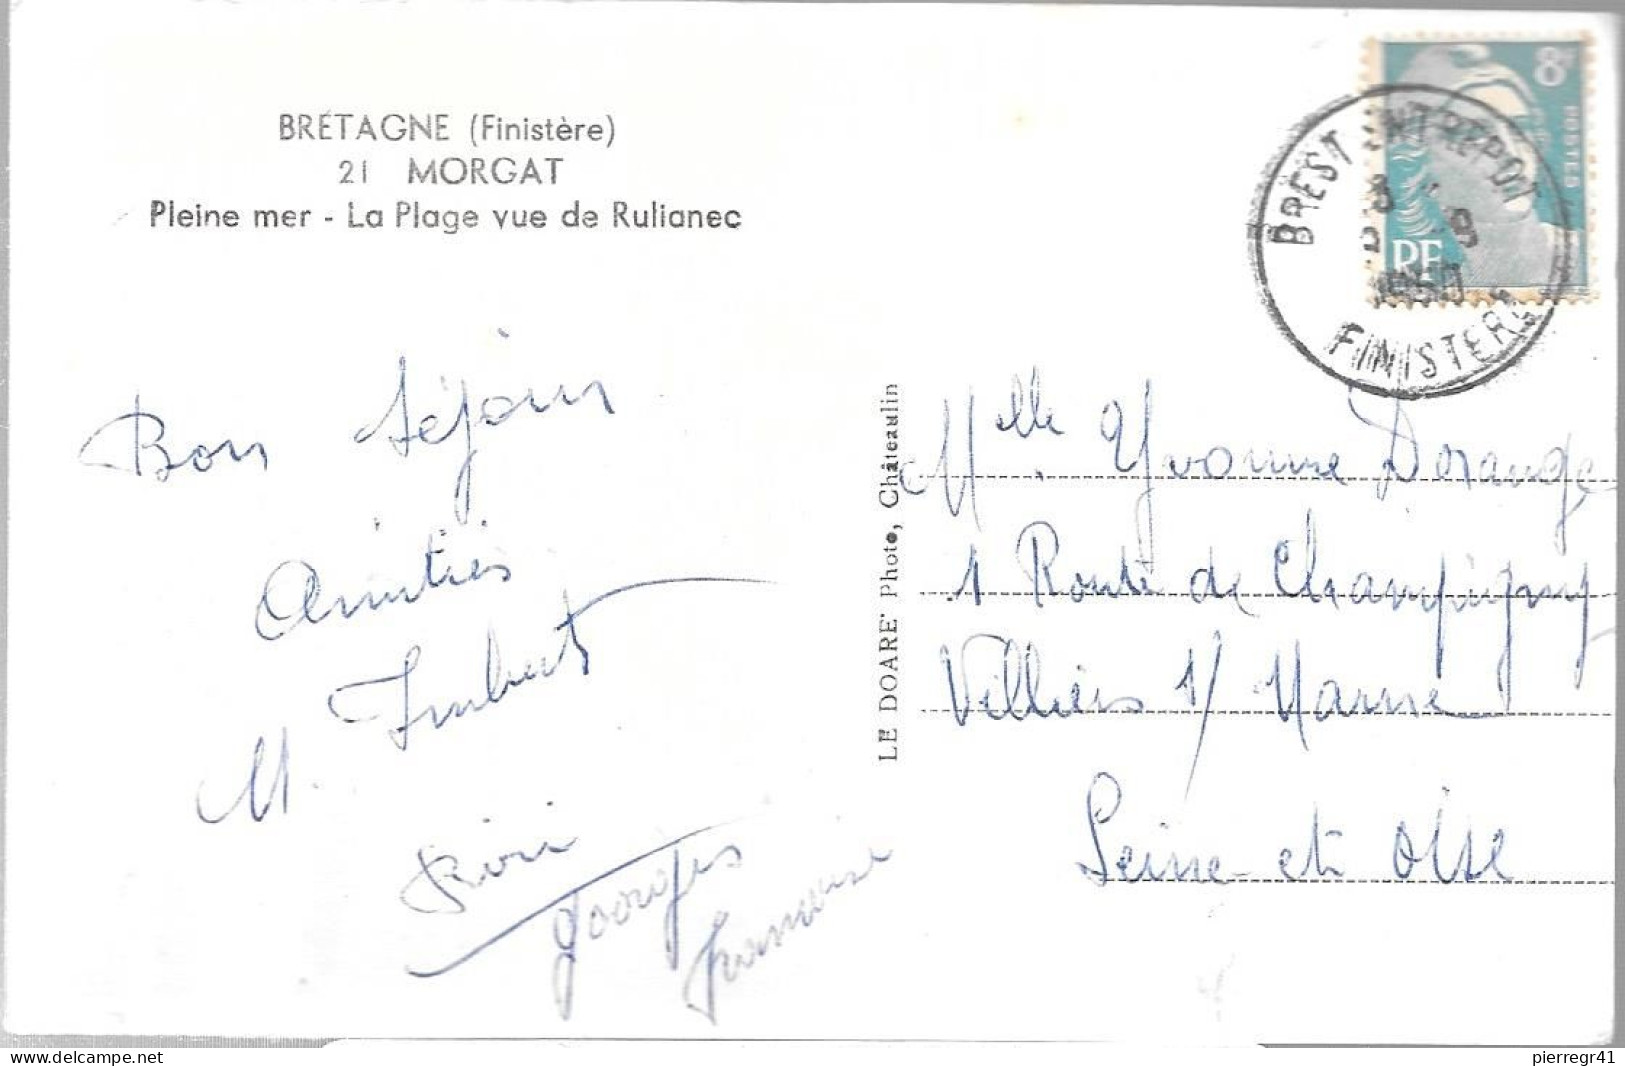 BRETAGNE (Finistère)
21 MORGAT
Pleine mer - La Plage vue de Rulianec
8F
POSTES
RF
BREST ENTREPOT
1950
FINISTERE
Bon séjour
Amitiés
M. Imbert
Riri
Georges
LE DOARE Photo, Châteaulin
Melle Yvonne Dorange
1 Route de Champigny
Villiers s/ Marne
Seine-et-Oise
pierregr41